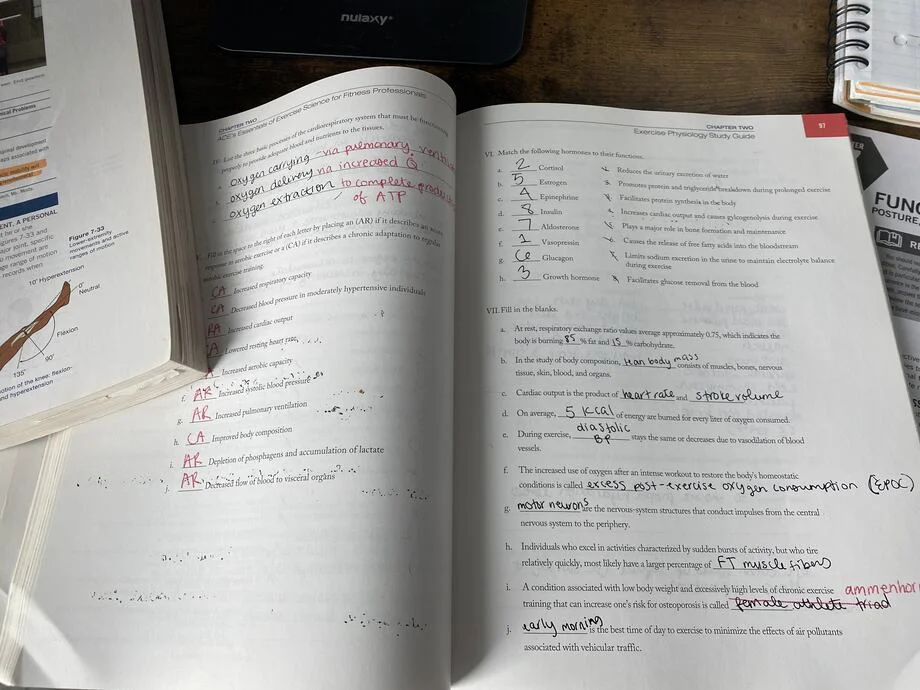 nulaxy
CHAPTER TWO
ACE's Essentials of Exercise Science for Fitness Professionals
IV. List the three basic processes of the cardiorespiratory system that must be functioning
properly to provide adequate blood and nutrients to the tissues.
oxygen carrying - via pulmonary
oxygen delivery via increased Q
oxygen extraction to complete
of ATP
Fill in the space to the right of each letter by placing an (AR) if it describes an acute
response to aerobic exercise or a (CA) if it describes a chronic adaptation to regular
aerobic exercise training.
CA Increased respiratory capacity
CA Decreased blood pressure in moderately hypertensive individuals
Increased cardiac output
Lowered resting heart rate
Increased aerobic capacity
f. AR Increased systolic blood pressure
g. AR Increased pulmonary ventilation
h. CA Improved body composition
i. AR Depletion of phosphagens and accumulation of lactate
j. AR Decreased flow of blood to visceral organs
CHAPTER TWO
Exercise Physiology Study Guide
97
VI. Match the following hormones to their functions.
a. 2 Cortisol
b. 5 Estrogen
c. 4 Epinephrine
d. 8 Insulin
e. 7 Aldosterone
f. 1 Vasopressin
g. 6 Glucagon
h. 3 Growth hormone
Reduces the urinary excretion of water
Promotes protein and triglyceride breakdown during prolonged exercise
Facilitates protein synthesis in the body
Increases cardiac output and causes gylcogenolysis during exercise
Plays a major role in bone formation and maintenance
Causes the release of free fatty acids into the bloodstream
Limits sodium excretion in the urine to maintain electrolyte balance
during exercise
Facilitates glucose removal from the blood
VII. Fill in the blanks.
a. At rest, respiratory exchange ratio values average approximately 0.75, which indicates the
body is burning 85 % fat and 15 % carbohydrate.
b. In the study of body composition, lean body mass consists of muscles, bones, nervous
tissue, skin, blood, and organs.
c. Cardiac output is the product of heart rate and stroke volume
d. On average, 5 kcal of energy are burned for every liter of oxygen consumed.
diastolic
e. During exercise, BP stays the same or decreases due to vasodilation of blood
vessels.
f. The increased use of oxygen after an intense workout to restore the body's homeostatic
conditions is called excess post-exercise oxygen consumption (EPOC)
g. motor neurons are the nervous-system structures that conduct impulses from the central
nervous system to the periphery.
h. Individuals who excel in activities characterized by sudden bursts of activity, but who tire
relatively quickly, most likely have a larger percentage of FT muscle fibers
i. A condition associated with low body weight and excessively high levels of chronic exercise
training that can increase one's risk for osteoporosis is called female athlete triad
j. early morning is the best time of day to exercise to minimize the effects of air pollutants
associated with vehicular traffic.
Figure 7-33
Lower-extremity
movements and active
ranges of motion
10° Hyperextension
0°
Neutral
Flexion
90°
135°
and hyperextension
CHAPTER
POSTURE,